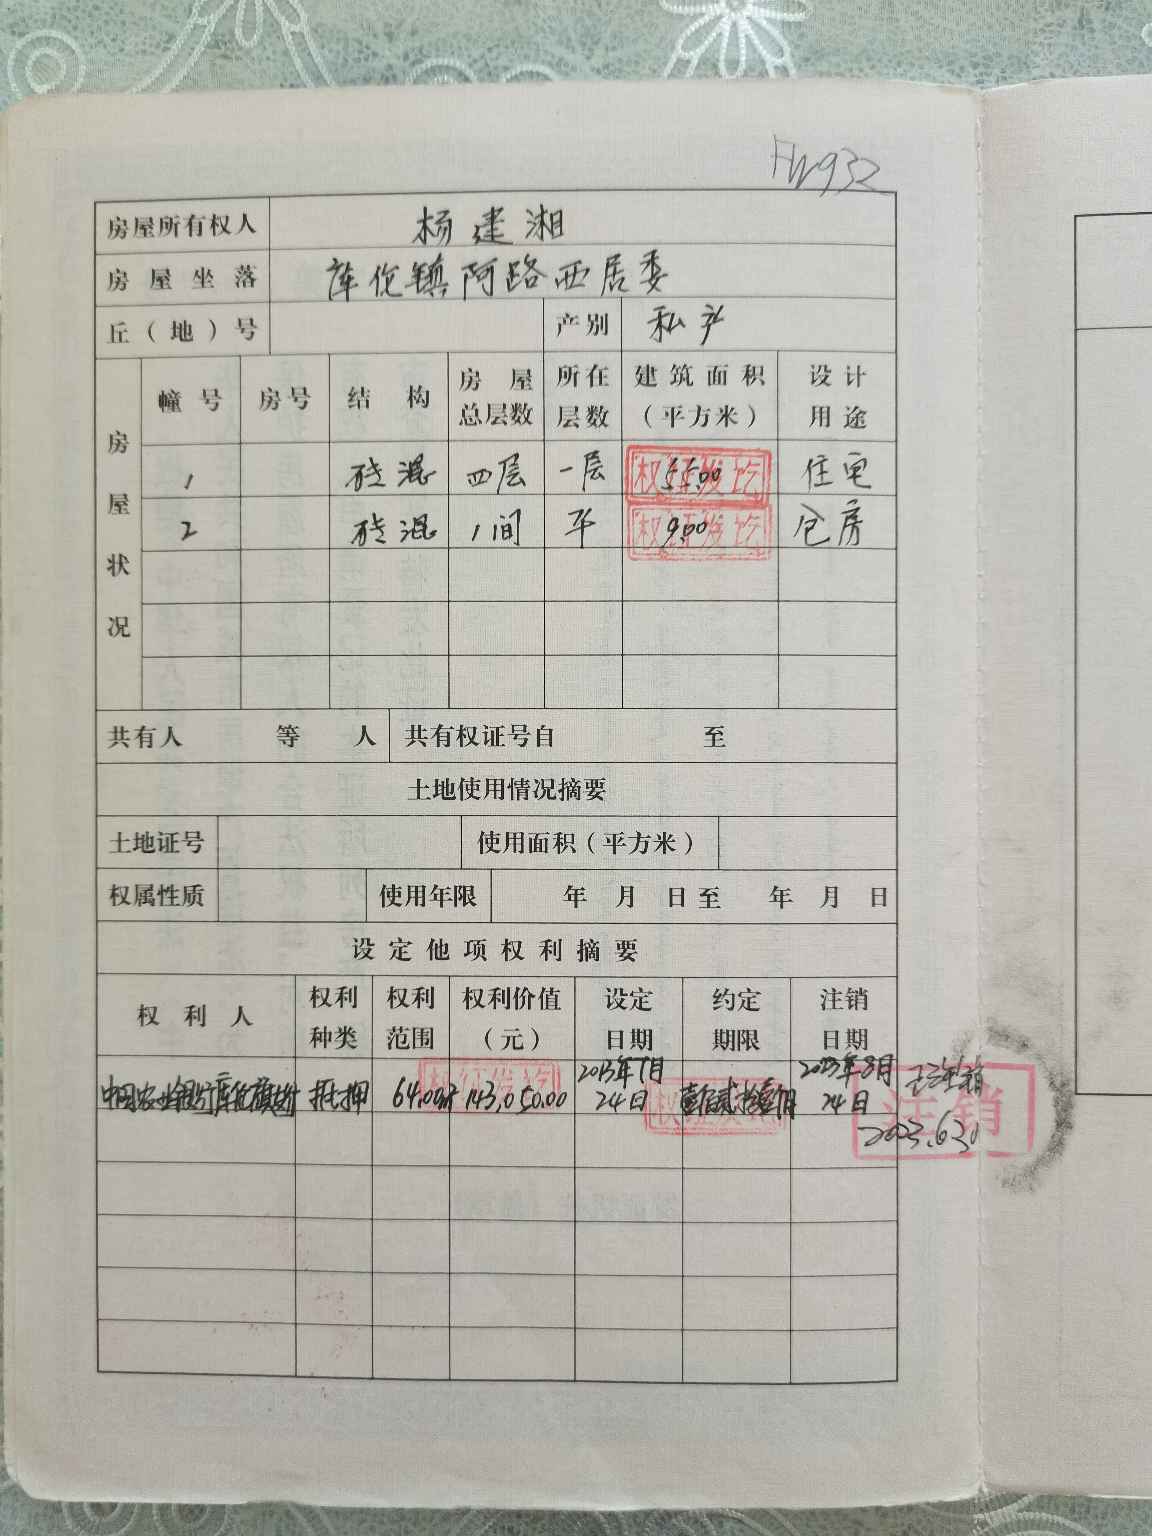 FW932
房屋所有权人 杨建湘
房屋坐落 库伦镇阿路西居委
丘（地）号 产别 私产
房屋状况
幢号 房号 结构 房屋总层数 所在层数 建筑面积（平方米） 设计用途
1 砖混 四层 一层 55.00 住宅
权证发讫
2 砖混 1间 平 9.00 仓房
权证发讫
共有人 等 人 共有权证号自 至
土地使用情况摘要
土地证号 使用面积（平方米）
权属性质 使用年限 年 月 日至 年 月 日
设定他项权利摘要
权利人 权利种类 权利范围 权利价值（元） 设定日期 约定期限 注销日期
中国农业银行库伦旗支行 抵押 64.00㎡ 143,050.00 2013年7月24日 壹佰贰拾壹个月 2023年8月24日
权证发讫
注销
2023.6.30